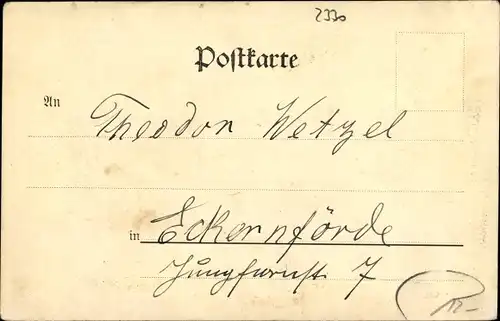 2330
Postkarte
An Theodor Wetzel
in Eckernförde
Jungfernst. 7
12-